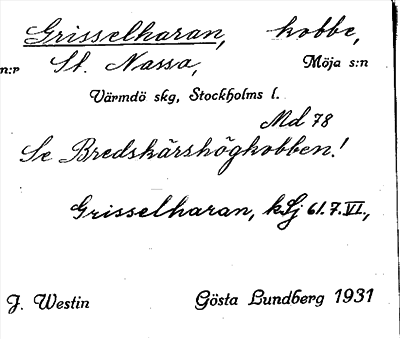 Grisselharan, kobbe,
n:r St. Nassa, Möja s:n
Värmdö skg, Stockholms l.
Md 78
Se Bredskärshögkobben!
Grisselharan, kSj 61.7.VI.,
J. Westin Gösta Lundberg 1931